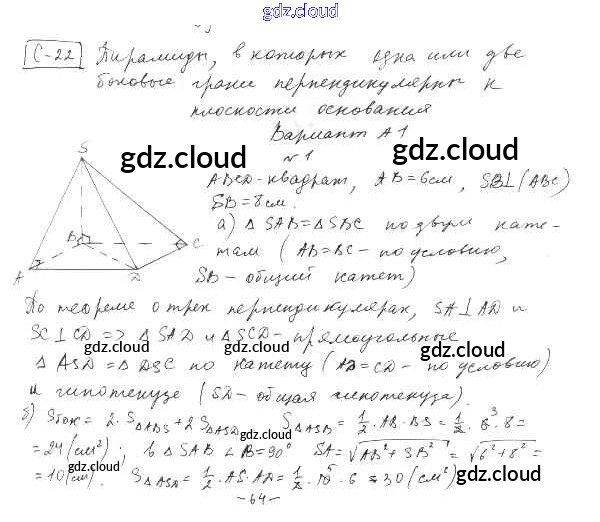 gdz.cloud
С-22 Пирамиды, в которых одна или две
боковые грани перпендикулярны к
плоскости основания
Вариант А1
gdz.cloud gdz.cloud
№1
S
ABCD-квадрат, AB=6см, SB⊥(ABC)
SB=8см.
а) Δ SAB=ΔSBC по двум кате-
там (AB=BC- по условию,
SB- общий катет)
B C
A D
gdz.cloud gdz.cloud
По теореме о трех перпендикулярах, SA⊥AD и
SC⊥CD => Δ SAD и ΔSCD- прямоугольные
gdz.cloud gdz.cloud
Δ ASD = Δ DSC по катету (AD=CD- по условию)
и гипотенузе (SD- общая гипотенуза).
б) Sбок = 2·SΔABS+2SΔASD SΔASB = 1/2·AB·BS = 1/2·6³·8=
=24(см²); в Δ SAB ∠B=90° SA=√AB²+SB² = √6²+8² =
gdz.cloud gdz.cloud
=10(см). SΔASD = 1/2·AS·AD = 1/2·10⁵·6=30(см²)
-64-